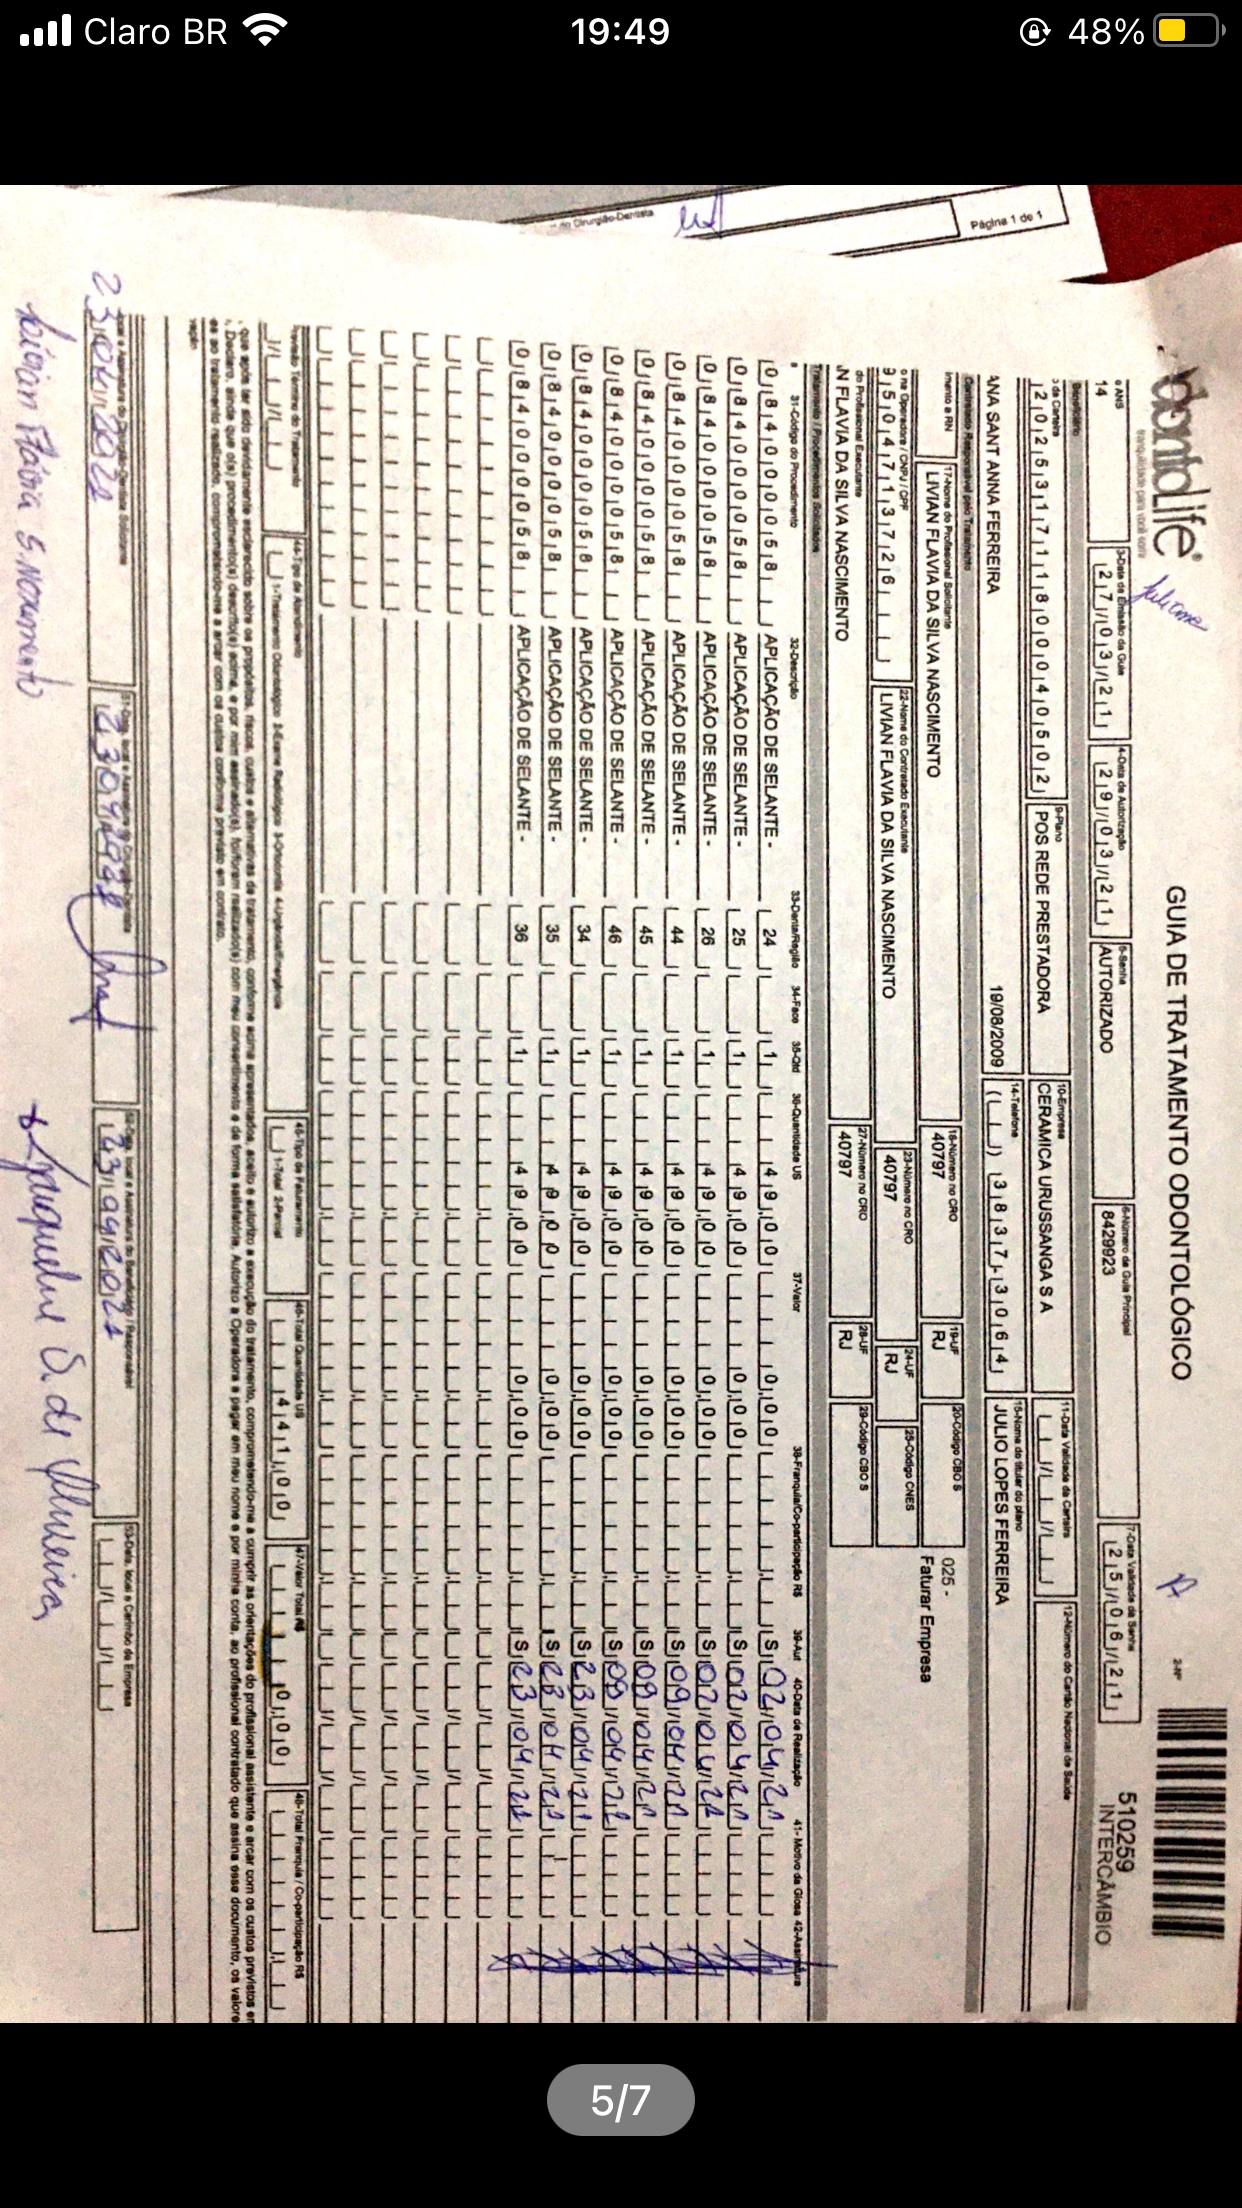 Claro BR
19:49
48%
Página 1 de 1
do Cirurgião-Dentista
dontaLife
tranquilidade para você sorrir
Juliana
GUIA DE TRATAMENTO ODONTOLÓGICO
2-Nº
510259
INTERCÂMBIO
o ANS
14
3-Data de Emissão da Guia
27/03/21
4-Data de Autorização
29/03/21
5-Senha
AUTORIZADO
6-Número da Guia Principal
8429923
7-Data Validade da Senha
25/06/21
Beneficiário
o da Carteira
20253171180004050 2
9-Plano
POS REDE PRESTADORA
10-Empresa
CERAMICA URUSSANGA S A
11-Data Validade da Carteira
12-Número do Cartão Nacional de Saúde
ANA SANT ANNA FERREIRA
19/08/2009
14-Telefone
( ) 3837-3064
15-Nome do titular do plano
JULIO LOPES FERREIRA
Contratado Responsável pelo Tratamento
imento a RN
17-Nome do Profissional Solicitante
LIVIAN FLAVIA DA SILVA NASCIMENTO
18-Número no CRO
40797
19-UF
RJ
20-Código CBO S
025 -
Faturar Empresa
o na Operadora / CNPJ / CPF
9504713726
22-Nome do Contratado Executante
LIVIAN FLAVIA DA SILVA NASCIMENTO
23-Número no CRO
40797
24-UF
RJ
25-Código CNES
do Profissional Executante
N FLAVIA DA SILVA NASCIMENTO
27-Número no CRO
40797
28-UF
RJ
29-Código CBO S
Tratamento / Procedimentos Solicitados
31-Código do Procedimento 32-Descrição 33-Dente/Região 34-Face 35-Qtd 36-Quantidade US 37-Valor 38-Franquia/Co-participação R$ 39-Aut 40-Data de Realização 41-Motivo da Glosa 42-Assinatura
084000058 APLICAÇÃO DE SELANTE - 24 1 49,00 0,00 S 02/04/21
084000058 APLICAÇÃO DE SELANTE - 25 1 49,00 0,00 S 02/04/21
084000058 APLICAÇÃO DE SELANTE - 26 1 49,00 0,00 S 02/04/21
084000058 APLICAÇÃO DE SELANTE - 44 1 49,00 0,00 S 09/04/21
084000058 APLICAÇÃO DE SELANTE - 45 1 49,00 0,00 S 09/04/21
084000058 APLICAÇÃO DE SELANTE - 46 1 49,00 0,00 S 09/04/21
084000058 APLICAÇÃO DE SELANTE - 34 1 49,00 0,00 S 23/04/21
084000058 APLICAÇÃO DE SELANTE - 35 1 49,00 0,00 S 23/04/21
084000058 APLICAÇÃO DE SELANTE - 36 1 49,00 0,00 S 23/04/21
Término do Tratamento
44-Tipo de Atendimento
1-Tratamento Odontológico 2-Exame Radiológico 3-Ortodontia 4-Urgência/Emergência
45-Tipo de Faturamento
1-Total 2-Parcial
46-Total Quantidade US
441,00
47-Valor Total R$
0,00
48-Total Franquia / Co-participação R$
, que após ter sido devidamente esclarecido sobre os propósitos, riscos, custos e alternativas de tratamento, conforme acima apresentados, aceito e autorizo a execução do tratamento, comprometendo-me a cumprir as orientações do profissional assistente e arcar com os custos previstos em
. Declaro, ainda que o(s) procedimento(s) descrito(s) acima, e por mim assinado(s), foi/foram realizado(s) com meu consentimento e de forma satisfatória. Autorizo a Operadora a pagar em meu nome e por minha conta, ao profissional contratado que assina esse documento, os valore
es ao tratamento realizado, comprometendo-me a arcar com os custos conforme previsto em contrato.
local e Assinatura do Cirurgião-Dentista Solicitante
51-Data, local e Assinatura do Cirurgião-Dentista
23042021
52-Data, local e Assinatura do Beneficiário / Responsável
23/04/2021
53-Data, local e Carimbo da Empresa
Livian Flávia S. Nascimento
Jaqueline S. de Oliveira
5/7